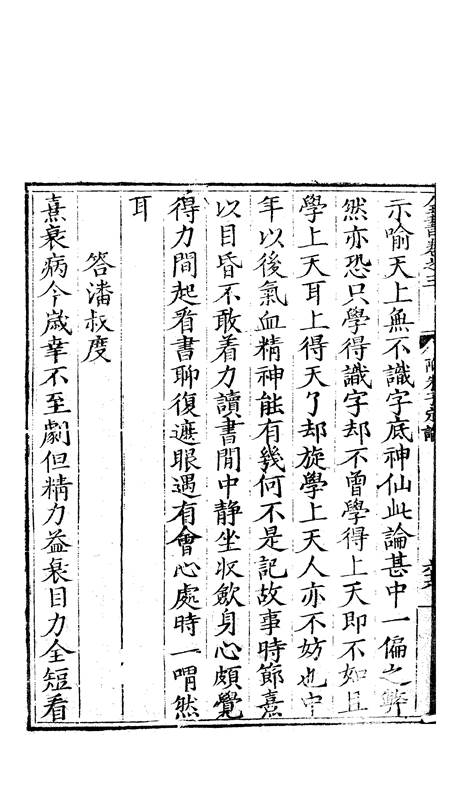 示喻天上無不識字底神仙此論甚中一偏之弊
然亦恐只學得識字却不曾學得上天即不如且
學上天耳上得天了却旋學上天人亦不妨也中
年以後氣血精神能有幾何不是記故事時節熹
以目昏不敢着力讀書閒中静坐收歛身心頗覺
得力間起看書聊復遮眼遇有會心處時一喟然
耳
答潘叔度
熹衰病今歲幸不至劇但精力益衰目力全短看